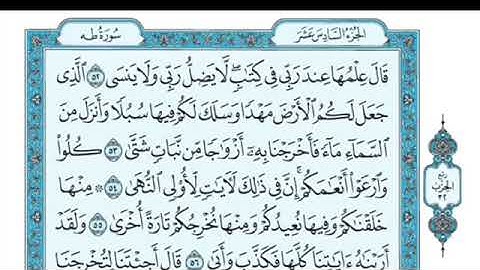 الجزء السادس عشر
سورة طه
قَالَ عِلْمُهَا عِندَ رَبِّى فِى كِتَٰبٍ لَّا يَضِلُّ رَبِّى وَلَا يَنسَى ٥٢ ٱلَّذِى
جَعَلَ لَكُمُ ٱلْأَرْضَ مَهْدًا وَسَلَكَ لَكُمْ فِيهَا سُبُلًا وَأَنزَلَ مِنَ
ٱلسَّمَآءِ مَآءً فَأَخْرَجْنَا بِهِۦٓ أَزْوَٰجًا مِّن نَّبَاتٍ شَتَّىٰ ٥٣ كُلُوا۟
وَٱرْعَوْا۟ أَنْعَٰمَكُمْ إِنَّ فِى ذَٰلِكَ لَـَٔايَٰتٍ لِّأُو۟لِى ٱلنُّهَىٰ ٥٤ ۞ مِنْهَا
خَلَقْنَٰكُمْ وَفِيهَا نُعِيدُكُمْ وَمِنْهَا نُخْرِجُكُمْ تَارَةً أُخْرَىٰ ٥٥ وَلَقَدْ
أَرَيْنَٰهُ ءَايَٰتِنَا كُلَّهَا فَكَذَّبَ وَأَبَىٰ ٥٦ قَالَ أَجِئْتَنَا لِتُخْرِجَنَا
ربع
الحزب
٣٢